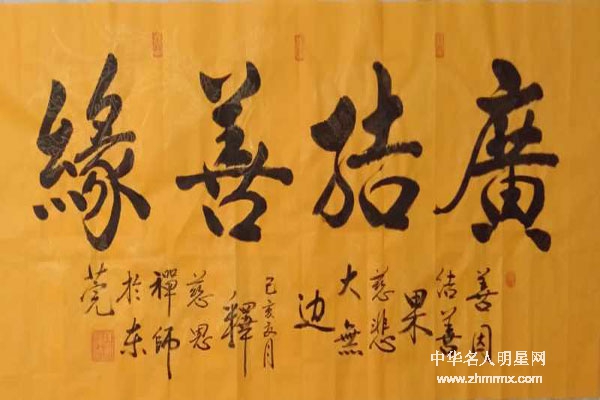 廣结善緣
善因
结善
果
慈悲
大無
边
己亥月
釋
慈恩
禪師
於东
莞
中华名人明星网
www.zhmrmx.com